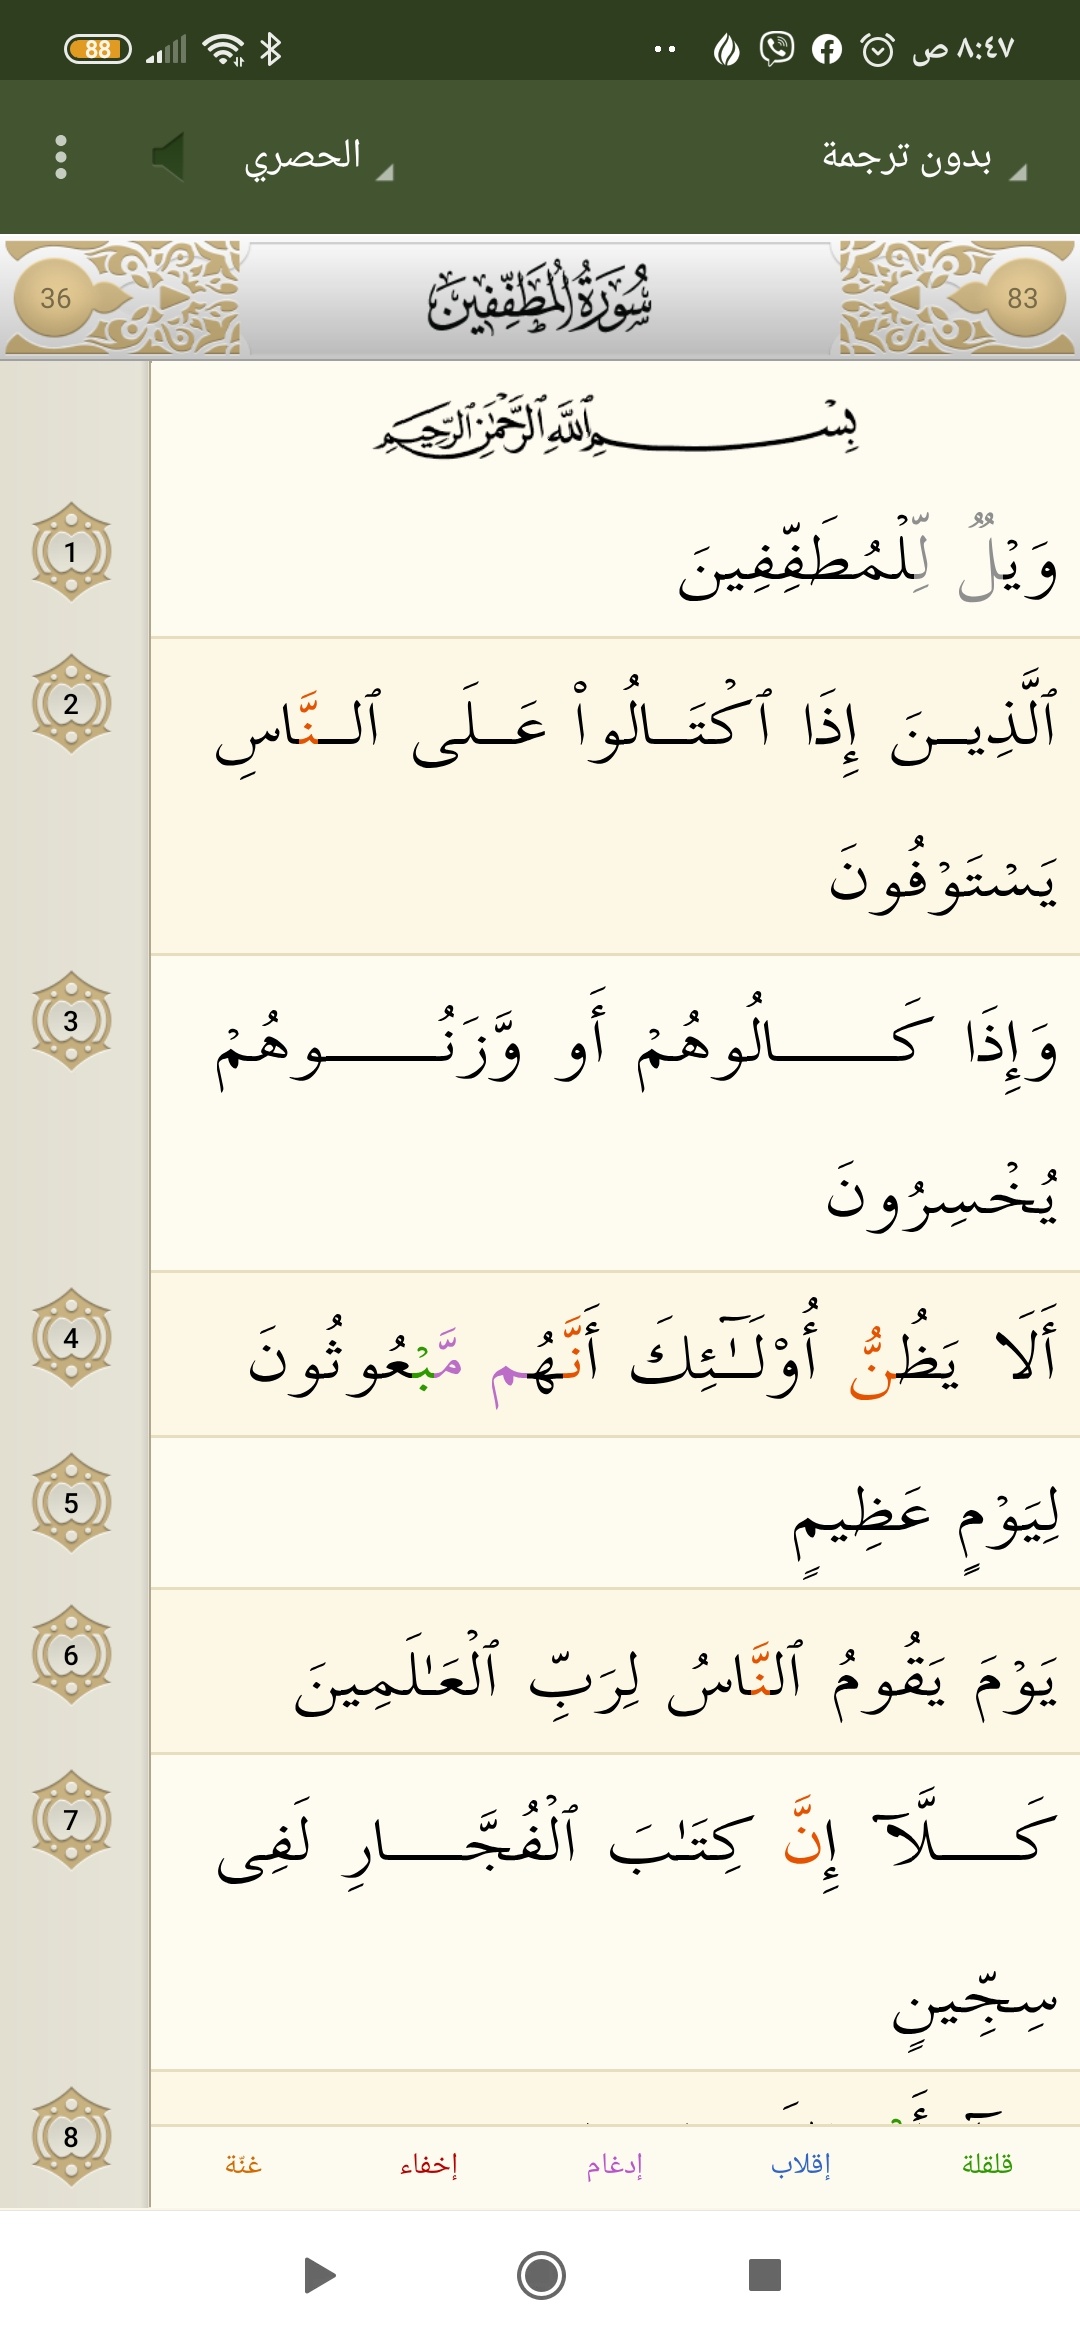 ٨:٤٧ ص
88
بدون ترجمة
الحصري
83
سُورَةُ الْمُطَفِّفِينَ
36
بِسْمِ ٱللَّهِ ٱلرَّحْمَٰنِ ٱلرَّحِيمِ
1
وَيْلٌ لِّلْمُطَفِّفِينَ
2
ٱلَّذِيــنَ إِذَا ٱكْتَــالُوا۟ عَــلَى ٱلــنَّاسِ
يَسْتَوْفُونَ
3
وَإِذَا كَـــــالُوهُمْ أَو وَّزَنُـــــوهُمْ
يُخْسِرُونَ
4
أَلَا يَظُنُّ أُو۟لَـٰٓئِكَ أَنَّهُم مَّبْعُوثُونَ
5
لِيَوْمٍ عَظِيمٍ
6
يَوْمَ يَقُومُ ٱلنَّاسُ لِرَبِّ ٱلْعَـٰلَمِينَ
7
كَــــلَّآ إِنَّ كِتَـٰبَ ٱلْفُجَّــــارِ لَفِى
سِجِّينٍ
8
قلقلة
إقلاب
إدغام
إخفاء
غنّة